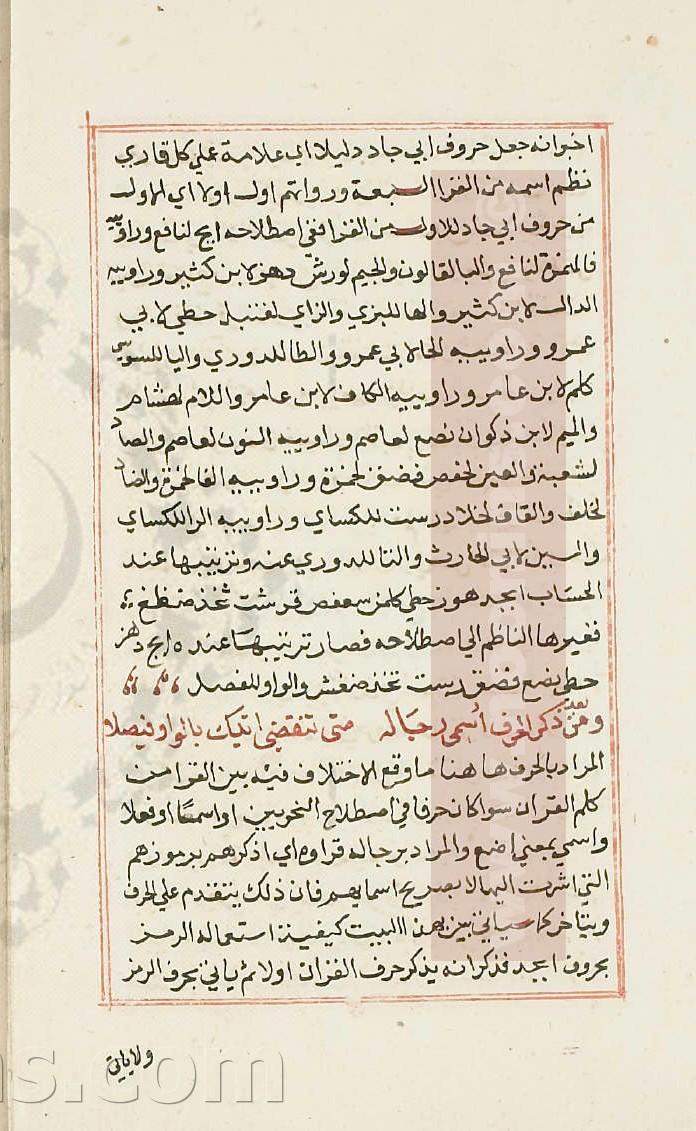 اخبر انه جعل حروف ابي جاد دليلا اي علامة علي كل قاري
نظم اسمه من القرا السبعة ورواتهم اول اولا اي الاول
من حروف ابي جاد للاول من القرا ففي اصطلاحه ابج لنافع وراوييه
فالهمزة لنافع والبا لقالون والجيم لورش دهز لابن كثير وراوييه
الدال لابن كثير والها للبزي والزاي لقنبل حطي لابي
عمرو وراوييه الحا لابي عمرو والطا للدوري واليا للسوسي
كلم لابن عامر وراوييه الكاف لابن عامر واللام لهشام
والميم لابن ذكوان نصع لعاصم وراوييه النون لعاصم والصاد
لشعبة والعين لحفص فضق لحمزة وراوييه الفا لحمزة والضاد
لخلف والقاف لخلاد رست للكساي وراوييه الرا للكساي
والسين لابي الحارث والتا للدوري عنه وترتيبها عند
الحساب ابجد هوز حطي كلمن سعفص قرشت ثخذ ضظغ
فغيرها الناظم الي اصطلاحه فصار ترتيبها عنده ابج دهز
حطي نصع فضق رست ثخذ ضغش والواو للفصل
ومن بعد ذكر الحرف اسمي رجاله متي تنقضي اتيك بالواو فيصلا
المراد بالحرف هاهنا ما وقع الاختلاف فيه بين القرا من
كلم القران سوا كان حرفا في اصطلاح النحويين او اسما او فعلا
واسمي بمعني اضع والمراد برجاله قراوه اي اذكرهم برموزهم
التي اشرت اليها لا بصريح اسمايهم فان ذلك يتقدم علي الحرف
ويتاخر كما سياتي بين بهذا البيت كيفية استعماله الرمز
بحروف ابجد فذكر انه يذكر حرف القران اولا ثم ياتي بحرف الرمز
ولاياتي
ns.com